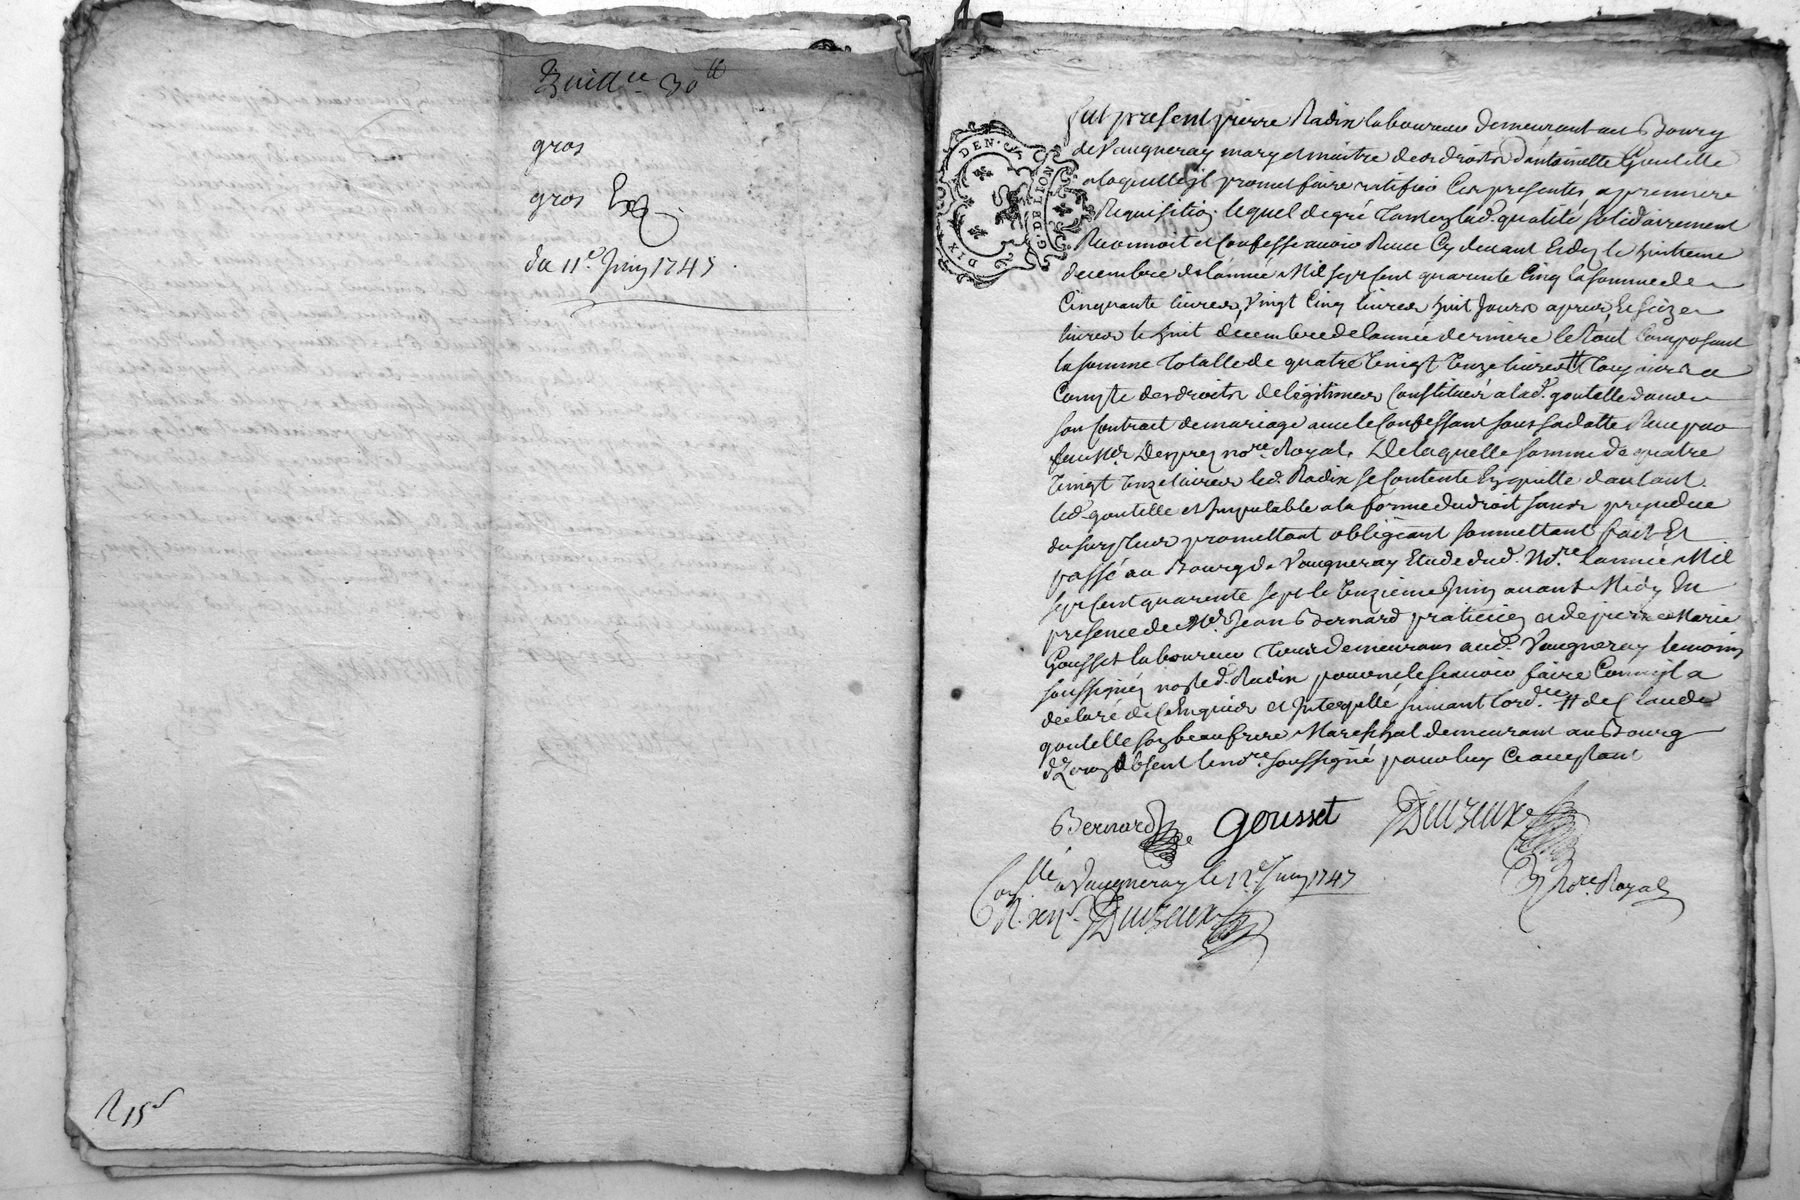 gros
gros
du 11e. Juin 1747.
R 15s
DEN.
G. DE LION
DIX
fut present pierre Radix laboureur demeurant au Bourg
de Vaugneray mary et maitre des droits d'antoinette Goutelle
a laquelle il promet faire ratifier Ces presentes a premiere
Requisition. lequel de gré tant en lad. qualité solidairement
Reconnoit et Confesse avoir Receu Cy devant Et dez le huitieme
decembre de l'année Mil sept cent quarente Cinq la somme de
Cinquante livres, Vingt Cinq livres huit Jours apres, Et seize
livres le huit decembre de l'année derniere le tout Composant
la somme Totalle de quatre Vingt Unze livres
Compte des droits de légitimes Constitués a lad. goutelle dans
son Contrat de mariage avec le Confessant sous sa datte Receu par
feu Mr. Desprez nore. Royal, De laquelle somme de quatre
Vingt Unze livres led. Radix se Contente En quitte d'autant
led. goutelle et Imputable a la forme du droit sans prejudice
du surplus promettant obligeant soumettant fait Et
passé au Bourg de Vaugneray Etude dud. Nore. l'année Mil
sept cent quarente sept le Unzieme Juin avant Midy En
presence de Mr. Jean Bernard praticien et de pierre Marie
Gousset laboureur Tous demeurans aud. Vaugneray temoins
soussignez non led. Radix pour ne le scavoir faire Comm'il a
declaré de Ce Enquis et Interpellé suivant l'ord.ce # de Claude
goutelle son beaufrere Mareschal demeurant au Bourg
absent le nore. soussigné pour luy Ce acceptant
Bernard gousset
Collé a Vaugneray le 12e Juin 1747
Nore. Royal